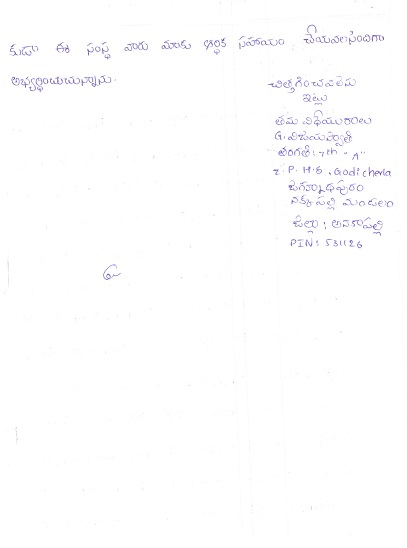 కుడా ఈ సంస్థ వారు మాకు ఆర్థిక సహాయం చేయవలసిందిగా
అభ్యర్థించుచున్నాను.
చిత్తగించవలెను
ఇట్లు
తమ విధేయురాలు
G. విజయస్వాతి
తరగతి: 7th "A"
Z. P. H. S, Godicherla
జగన్నాధపురం
నక్కపల్లి మండలం
జిల్లా : అనకాపల్లి
PIN: 531126